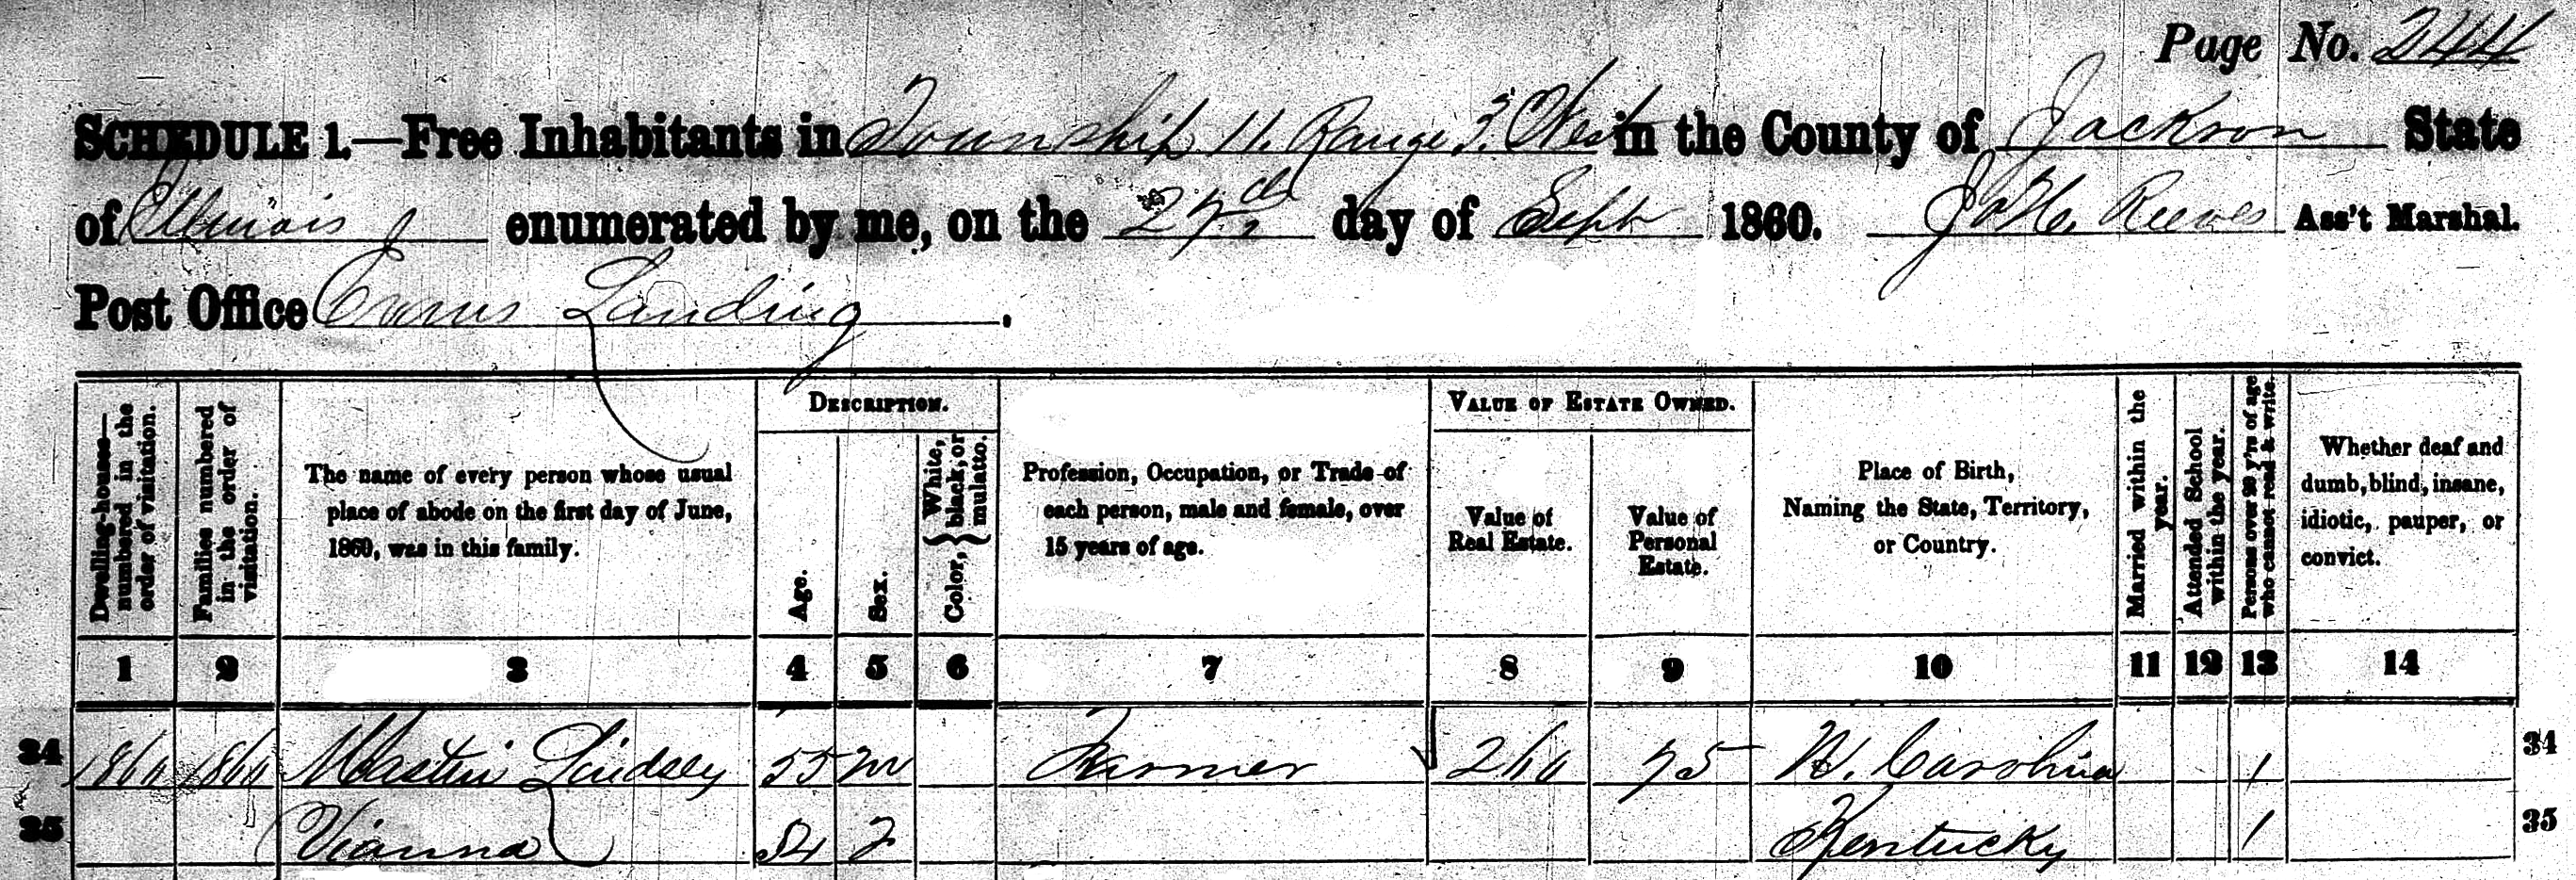 Page No. 244
SCHEDULE 1.—Free Inhabitants in Township 11. Range 3. West in the County of Jackson State
of Illinois enumerated by me, on the 27th day of Sept 1860. Reeves Ass't Marshal.
Post Office Evans Landing.
DESCRIPTION.
VALUE OF ESTATE OWNED.
Dwelling-houses—numbered in the order of visitation.
Families numbered in the order of visitation.
The name of every person whose usual
place of abode on the first day of June,
1860, was in this family.
Age.
Sex.
Color, { White, black, or mulatto.
Profession, Occupation, or Trade of
each person, male and female, over
15 years of age.
Value of
Real Estate.
Value of
Personal
Estate.
Place of Birth,
Naming the State, Territory,
or Country.
Married within the year.
Attended School within the year.
Persons over 20 y'rs of age who cannot read & write.
Whether deaf and
dumb, blind, insane,
idiotic, pauper, or
convict.
1 2 3 4 5 6 7 8 9 10 11 12 13 14
34 1860 1860 Mastin Lindsey 55 m Farmer 260 75 N. Carolina 1 34
35 Vianna 54 f Kentucky 1 35